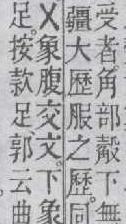 受者。角部觳下無
疆大歷服之歷。同
乂象腹交文。下象
足。按款足。郭云曲